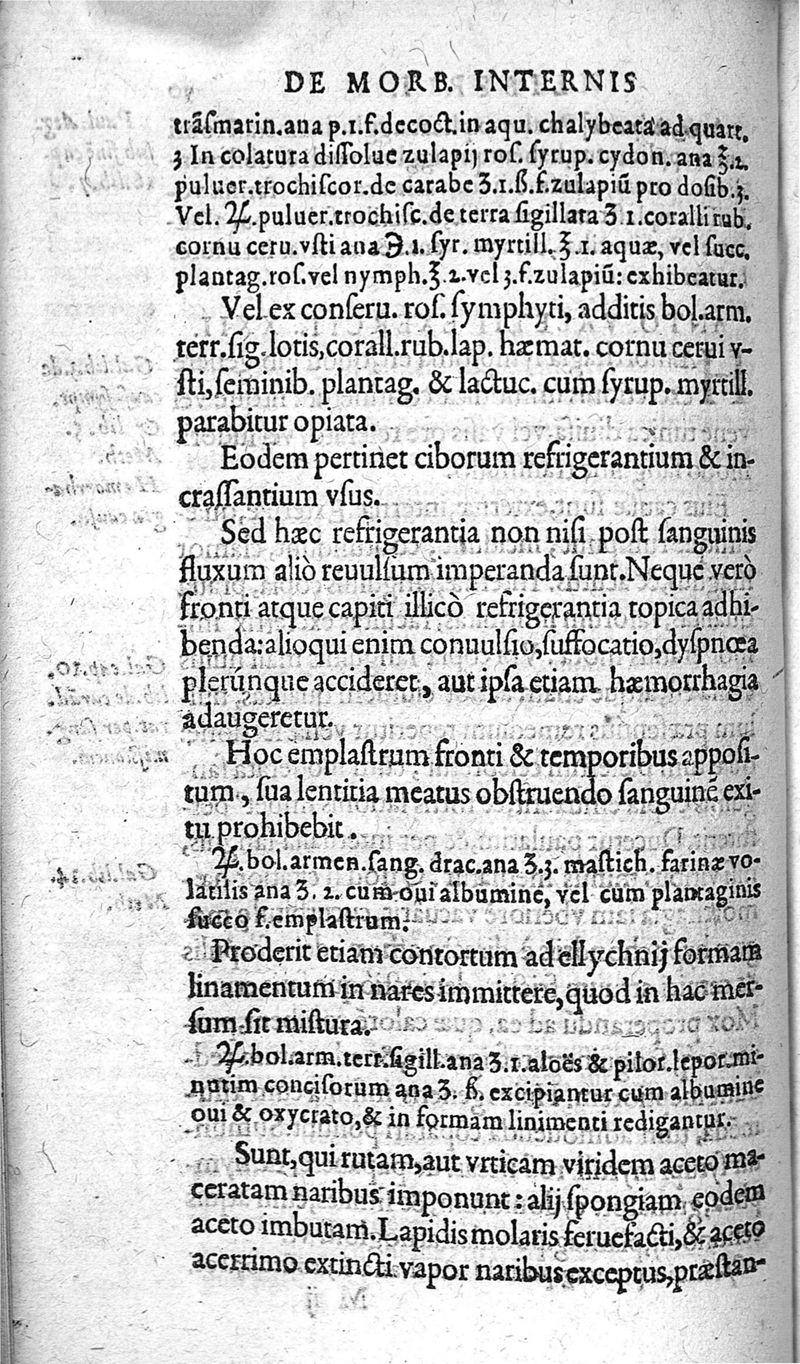 DE MORB. INTERNIS
trãſmarin.ana p.1.f.decoct.in aqu. chalybeata ad quart.
ʒ In colatura diſſolue zulapij roſ. ſyrup. cydon. ana ℥.2.
puluer.trochiſcor.de carabe ʒ.1.ß.f.zulapiũ pro doſib.ʒ.
Vel. ℞.puluer.trochiſc.de terra ſigillata ʒ 1.coralli rub.
cornu ceru.vſti ana ℈.1. ſyr. myrtill. ℥.1. aquæ, vel ſucc.
plantag.roſ.vel nymph.℥.2.vel ʒ.f.zulapiũ: exhibeatur.
Vel ex conſeru. roſ. ſymphyti, additis bol.arm.
terr.ſig.lotis,corall.rub.lap. hæmat. cornu cerui v-
ſti,ſeminib. plantag. & lactuc. cum ſyrup. myrtill.
parabitur opiata.
Eodem pertinet ciborum refrigerantium & in-
craſſantium vſus.
Sed hæc refrigerantia non niſi poſt ſanguinis
fluxum aliò reuulſum imperanda ſunt.Neque verò
fronti atque capiti illicò refrigerantia topica adhi-
benda:alioqui enim conuulſio,ſuffocatio,dyſpnœa
plerunque accideret, aut ipſa etiam hæmorrhagia
adaugeretur.
Hoc emplaſtrum fronti & temporibus appoſi-
tum, ſua lentitia meatus obſtruendo ſanguinẽ exi-
tu prohibebit.
℞.bol.armen.ſang. drac.ana ʒ.ʒ. maſtich. farinæ vo-
latilis ana ʒ. 2. cum oui albumine, vel cum plantaginis
ſucco f.emplaſtrum.
Proderit etiam contortum ad ellychnij formam
linamentum in nares immittere,quod in hac mer-
ſum ſit miſtura.
℞.bol.arm.terr.ſigill.ana ʒ.1.aloës & pilor.lepor.mi-
nutim conciſorum ana ʒ. ß. excipiantur cum albumine
oui & oxycrato,& in formam linimenti redigantur.
Sunt,qui rutam,aut vrticam viridem aceto ma-
ceratam naribus imponunt: alij ſpongiam eodem
aceto imbutam.Lapidis molaris feruefacti,& aceto
acerrimo extincti vapor naribus exceptus,præſtan-